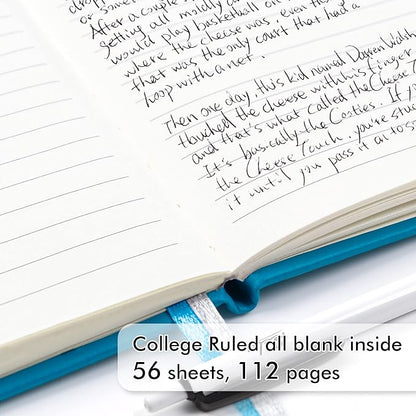 or some
After a couple
getting all moldy a
would play basketball on
where the cheese was, even tho
that was the only court that had a
hoop with a net.
Then one day this kid named Darren Walsh
touched the cheese with his finger
and that's what called the Cheese T
It's basically the Cooties. If yo
the Cheese Touch, you're stu
it until you pass it on to so
College Ruled all blank inside
56 sheets, 112 pages